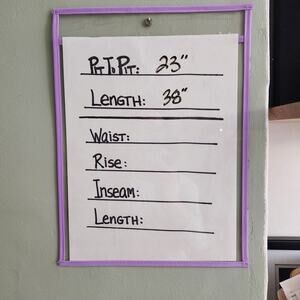 Pit To Pit: 23"
Length: 38"
Waist:
Rise:
Inseam:
Length: